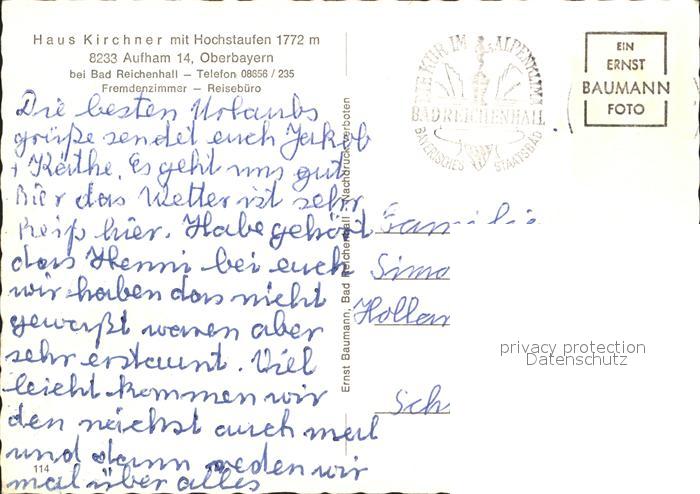 Haus Kirchner mit Hochstaufen 1772 m
8233 Aufham 14, Oberbayern
bei Bad Reichenhall — Telefon 08656 / 235
Fremdenzimmer — Reisebüro
Die besten Urlaubs
grüße sendet euch Jakob
+ Käthe. Es geht uns gut
hier das Wetter ist sehr
heiß hier. Habe gehört
das Henni bei euch
wir haben das nicht
gewußt waren aber
sehr erstaunt. Viel
leicht kommen wir
den nächst auch mal
und dann reden wir
mal über alles
114
Ernst Baumann, Bad Reichenhall Nachdruck verboten
DIE KUR IM ALPENKLIMA
BAD REICHENHALL
BAYERISCHES STAATSBAD
EIN
ERNST
BAUMANN
FOTO
Familie
Simo
Hollan
Sch
privacy protection
Datenschutz